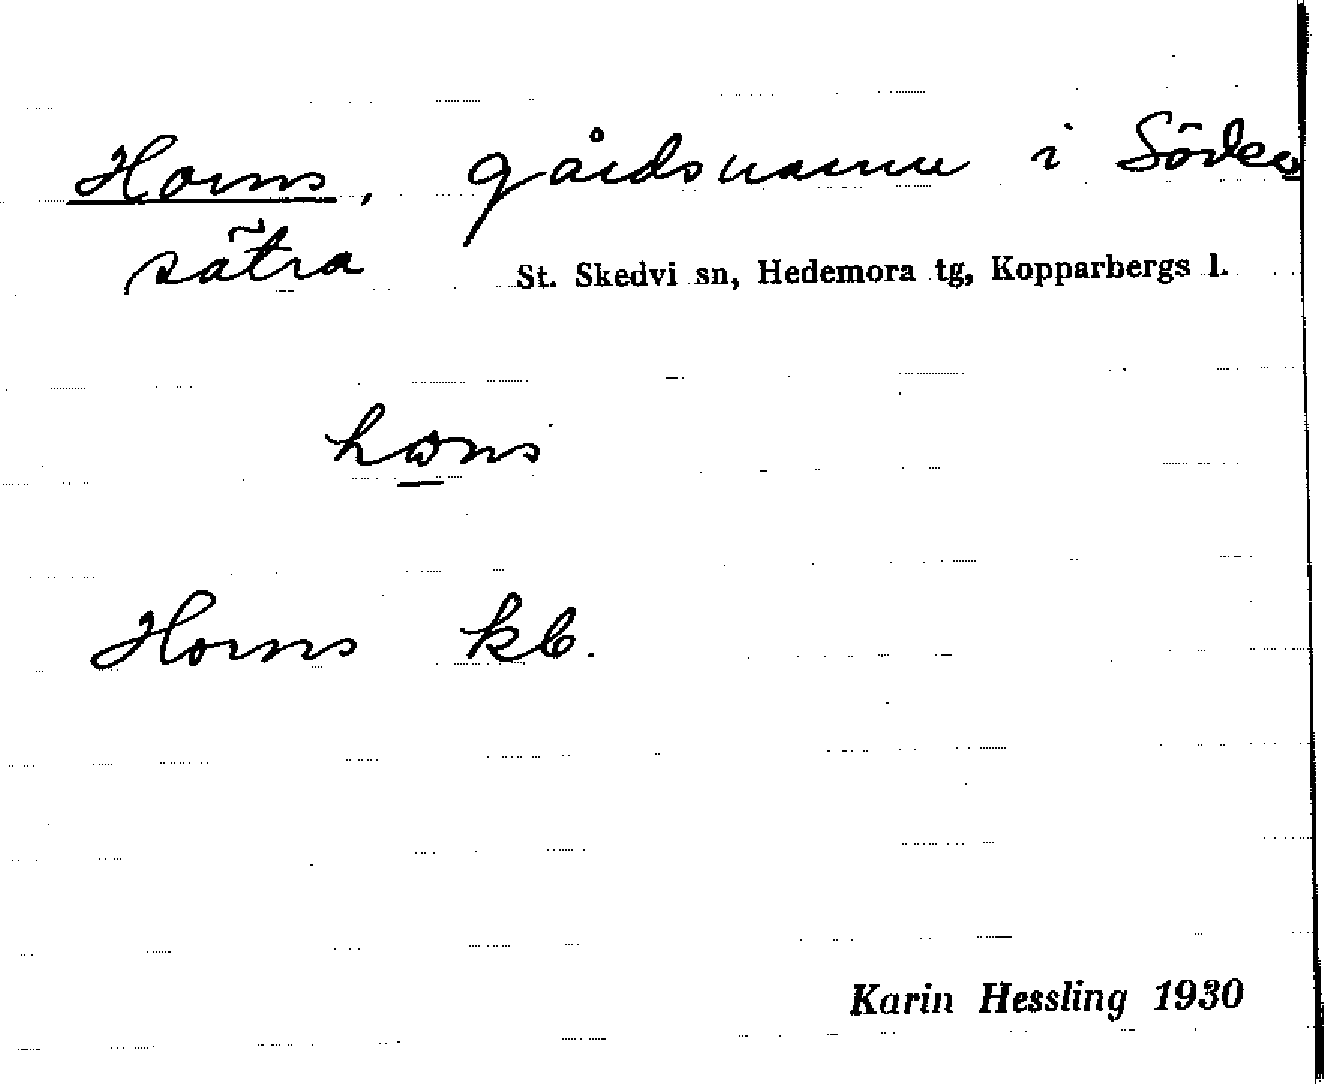 Horns, gårdsnamn i Söder
sätra St. Skedvi sn, Hedemora tg, Kopparbergs l.
hɷns
Horns kb.
Karin Hessling 1930